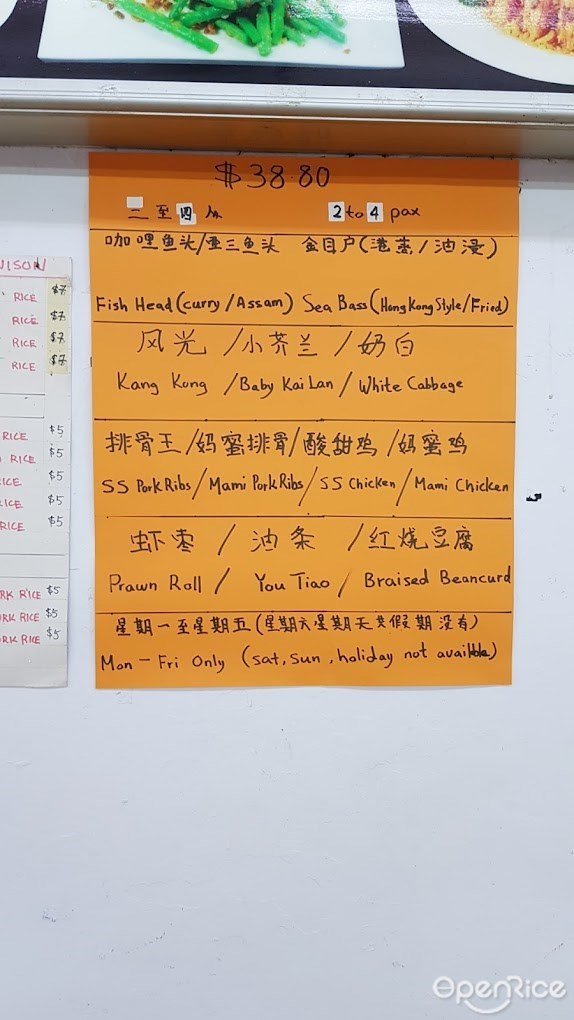 $38.80
二至四人 2 to 4 pax
咖哩鱼头/亚三鱼头 金目户(港蒸/油浸)
Fish Head(curry/Assam) Sea Bass(HongKong Style/Fried)
风光/小芥兰/奶白
Kang Kong/Baby Kai Lan/White Cabbage
排骨王/妈蜜排骨/酸甜鸡/妈蜜鸡
SS Pork Ribs/Mami Pork Ribs/SS Chicken/Mami Chicken
虾枣/油条/红烧豆腐
Prawn Roll/You Tiao/Braised Beancurd
星期一至星期五(星期六星期天共假期没有)
Mon-Fri Only (sat, sun, holiday not available)
NISON
RICE $7
RICE $7
RICE $7
RICE $7
RICE $5
RICE $5
RICE $5
RICE $5
RICE $5
RK RICE $5
ORK RICE $5
ORK RICE $5
OpenRice